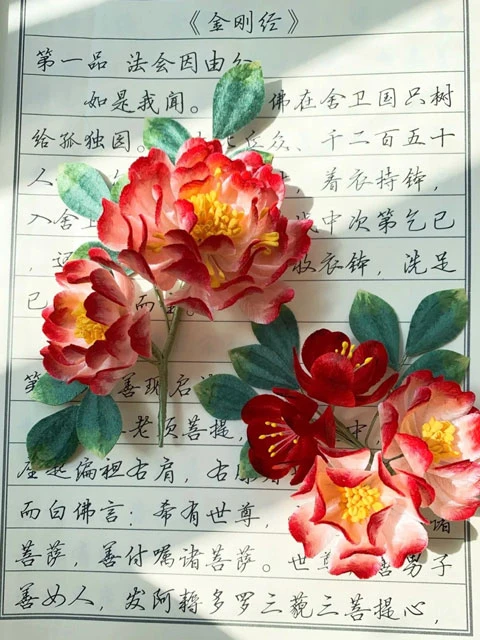 《金刚经》
第一品 法会因由分
如是我闻。 佛在舍卫国只树
给孤独园。 众、千二百五十
人 着衣持钵,
入舍 中次第乞已
, 收衣钵,洗足
已 而
第 善现启
老须菩提, 中
座起偏袒右肩,右
而白佛言:希有世尊, 诸
菩萨,善付嘱诸菩萨。世尊 善男子
善女人,发阿耨多罗三藐三菩提心,